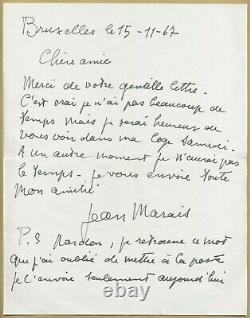 Bruxelles le 15-11-67
Chère amie
Merci de votre gentille lettre.
C'est vrai je n'ai pas beaucoup de
temps mais je serai heureux de
vous voir dans ma loge samedi.
A un autre moment je n'aurai pas
le temps. je vous envoie toute
mon amitié
Jean Marais
P.S Pardon, je retrouve ce mot
que j'ai oublié de mettre à la poste
je l'envoie seulement aujourd'hui